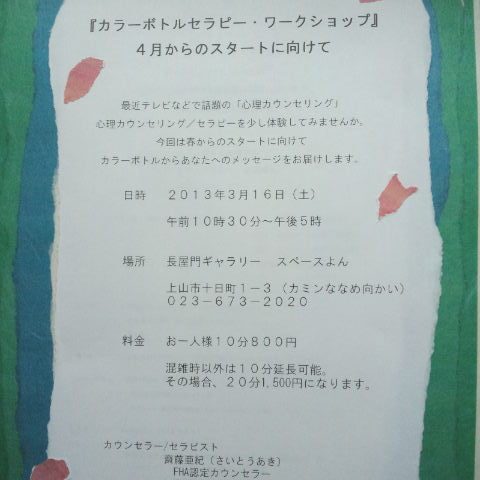 『カラーボトルセラピー・ワークショップ』
4月からのスタートに向けて
最近テレビなどで話題の「心理カウンセリング」
心理カウンセリング／セラピーを少し体験してみませんか。
今回は春からのスタートに向けて
カラーボトルからあなたへのメッセージをお届けします。
日時 2013年3月16日（土）
午前10時30分～午後5時
場所 長屋門ギャラリー スペースよん
上山市十日町1－3（カミンななめ向かい）
023－673－2020
料金 お一人様10分800円
混雑時以外は10分延長可能。
その場合、20分1,500円になります。
カウンセラー/セラピスト
齋藤亜紀（さいとうあき）
FHA認定カウンセラー